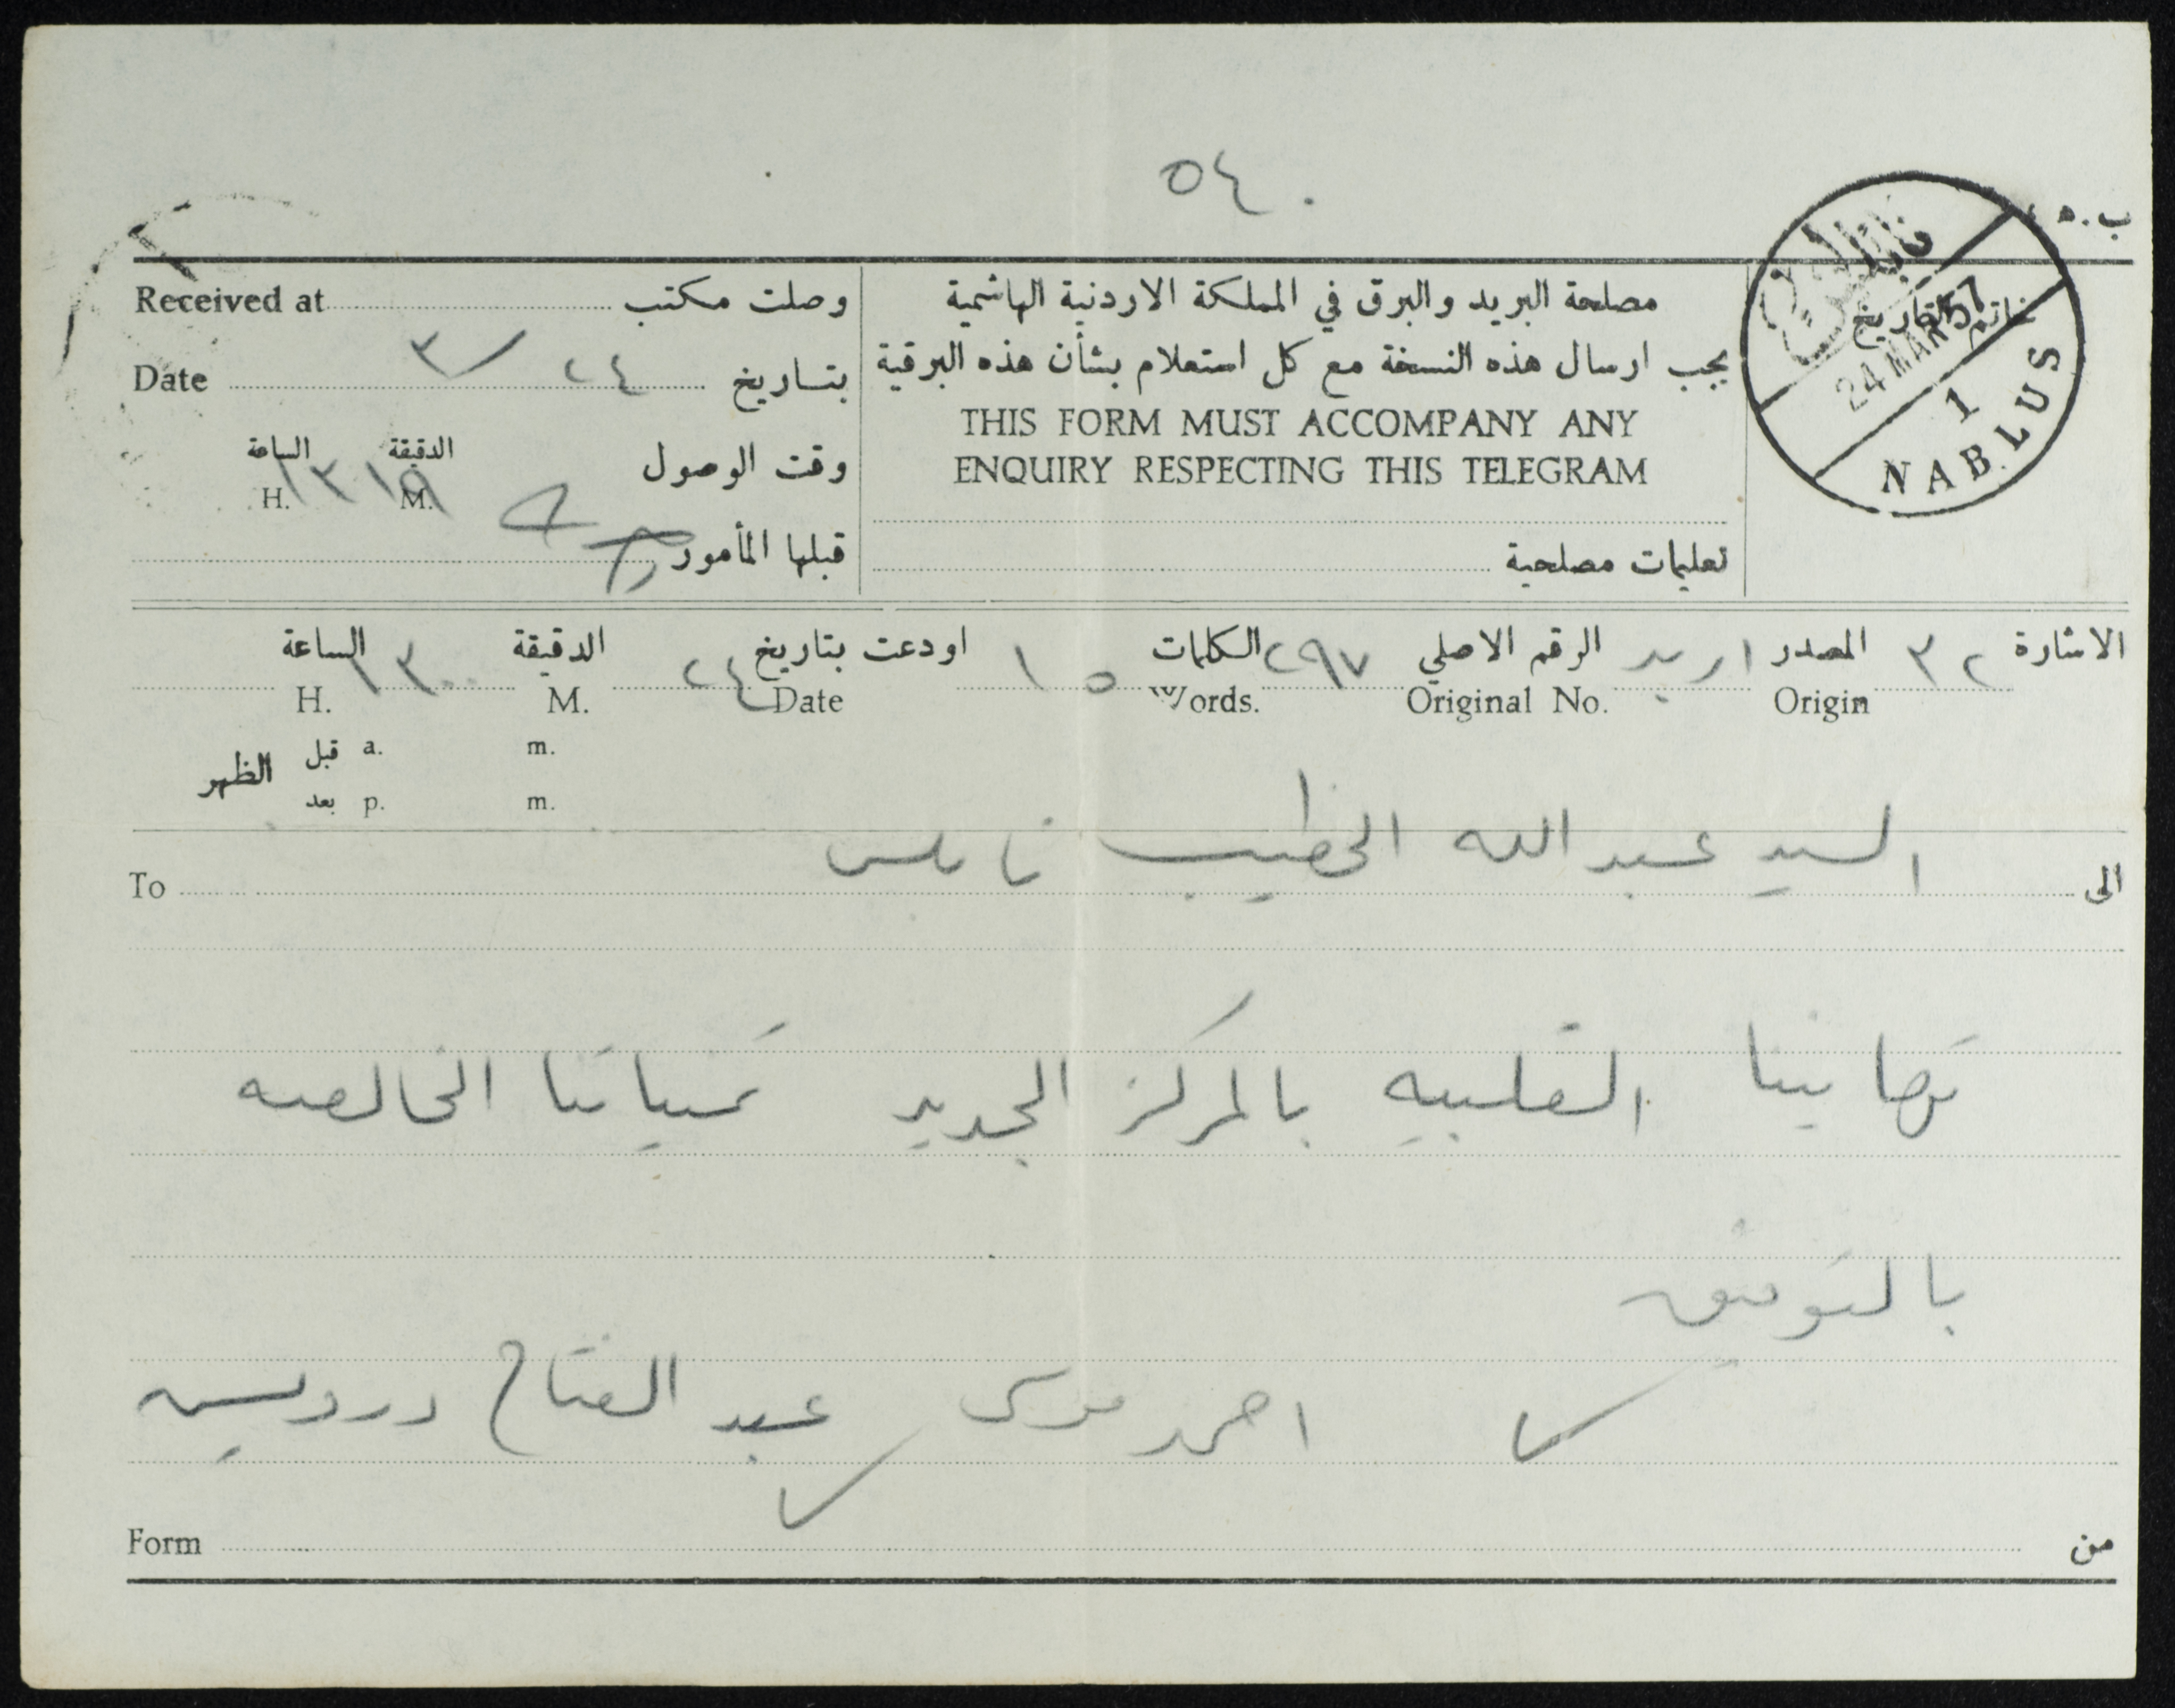 ٥٤٠
ب.٥
نابلس
24 MAR 57
1
NABLUS
خاتم التاريخ
مصلحة البريد والبرق في المملكة الاردنية الهاشمية
يجب ارسال هذه النسخة مع كل استعلام بشأن هذه البرقية
THIS FORM MUST ACCOMPANY ANY
ENQUIRY RESPECTING THIS TELEGRAM
تعليمات مصلحية
وصلت مكتب Received at
بتاريخ ٢٤/٣ Date
وقت الوصول الدقيقة الساعة
١٣ ١٩
H. M.
قبلها المأمور
الاشارة ٣٢ المصدر اربد الرقم الاصلي ٢٩٧ الكلمات ١٥ اودعت بتاريخ ٢٤ الدقيقة الساعة ١٣٠٠
Origin Original No. Words. Date M. H.
قبل a. m.
الظهر
بعد p. m.
الى السيد عبد الله الخطيب نابلس To
تهانينا القلبيه بالمركز الجديد تمنياتنا الخالصه
بالتوفيق
احمد موسى عبد الفتاح درويش
من Form